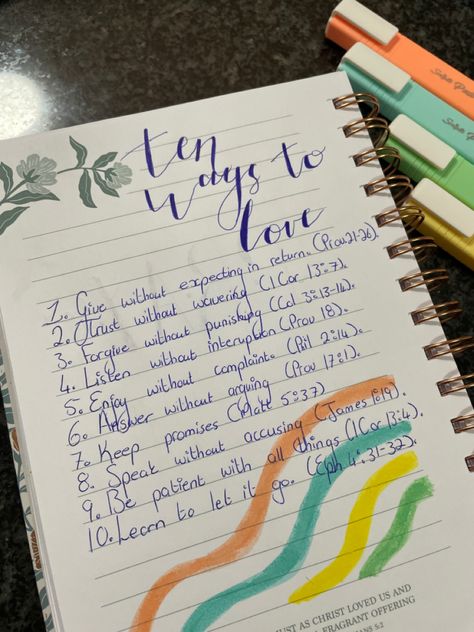 ten
ways to
love
1. Give without expecting in return. (Prov. 21-26).
2. Trust without wavering (1 Cor 13:7).
3. Forgive without punishing (Col 3:13-14).
4. Listen without interuption (Prov 18).
5. Enjoy without complaint. (Pil 2:14).
6. Answer without arguing (Prov 17:1).
7. Keep promises (Matt 5:37)
8. Speak without accusing (James 1:19).
9. Be patient with all things (1 Cor 13:4).
10. Learn to let it go. (Eph 4:31-32).
JUST AS CHRIST LOVED US AND
FRAGRANT OFFERING
5:2